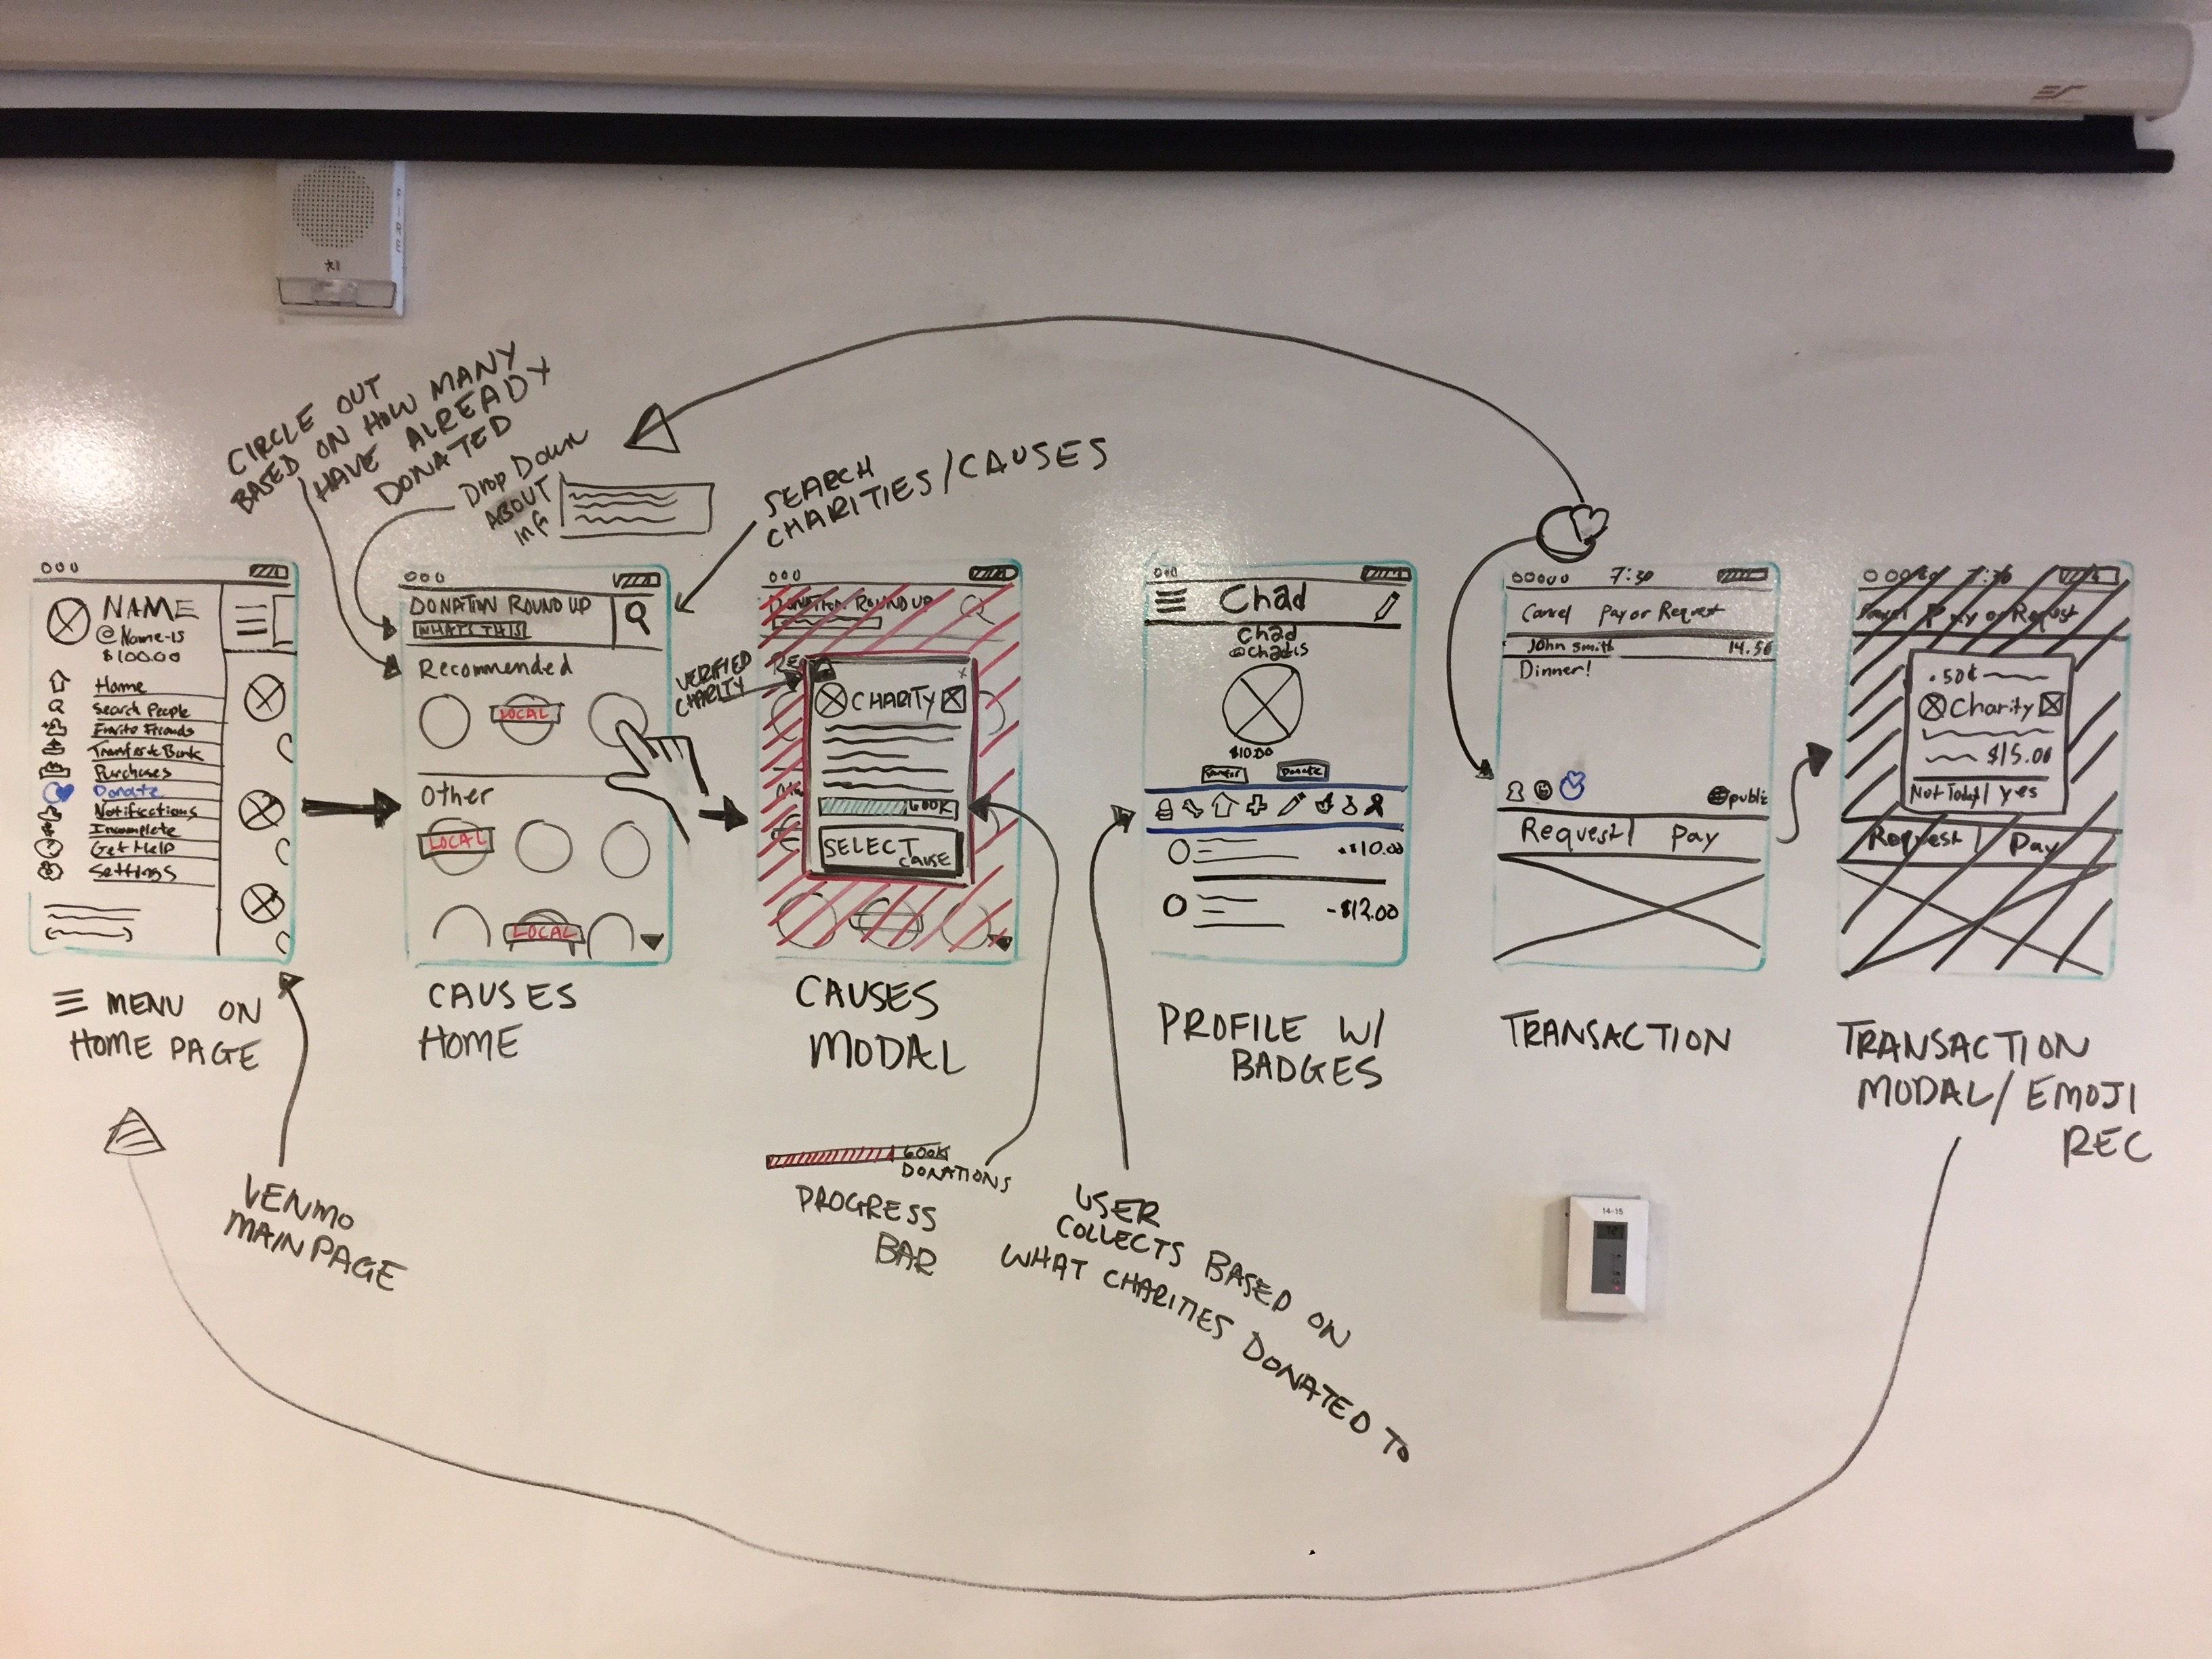 CIRCLE OUT
BASED ON HOW MANY
HAVE ALREADY
DONATED
Drop Down
ABOUT
SEARCH
CHARITIES/CAUSES
NAME
@Name-is
$100.00
Home
Search People
Transfer to Bank
Purchases
Donate
Notifications
Incomplete
Get Help
Settings
MENU ON
HOME PAGE
VENMO
MAIN PAGE
DONATION ROUND UP
WHATS THIS
Recommended
LOCAL
Other
LOCAL
LOCAL
CAUSES
HOME
VERIFIED
CHARITY
DONATION ROUND UP
RE
x
CHARITY
600K
SELECT
CAUSE
CAUSES
MODAL
600K
DONATIONS
PROGRESS
BAR
Chad
Chad
@chadis
$10.00
Donate
+$10.00
-$12.00
PROFILE W/
BADGES
USER
COLLECTS BASED ON
WHAT CHARITIES DONATED TO
7:30
Cancel Pay or Request
John Smith 14.56
Dinner!
public
Request Pay
TRANSACTION
7:30
Cancel Pay or Request
.50¢
Charity
$15.00
Not Today yes
Request Pay
TRANSACTION
MODAL/EMOJI
REC
14-15